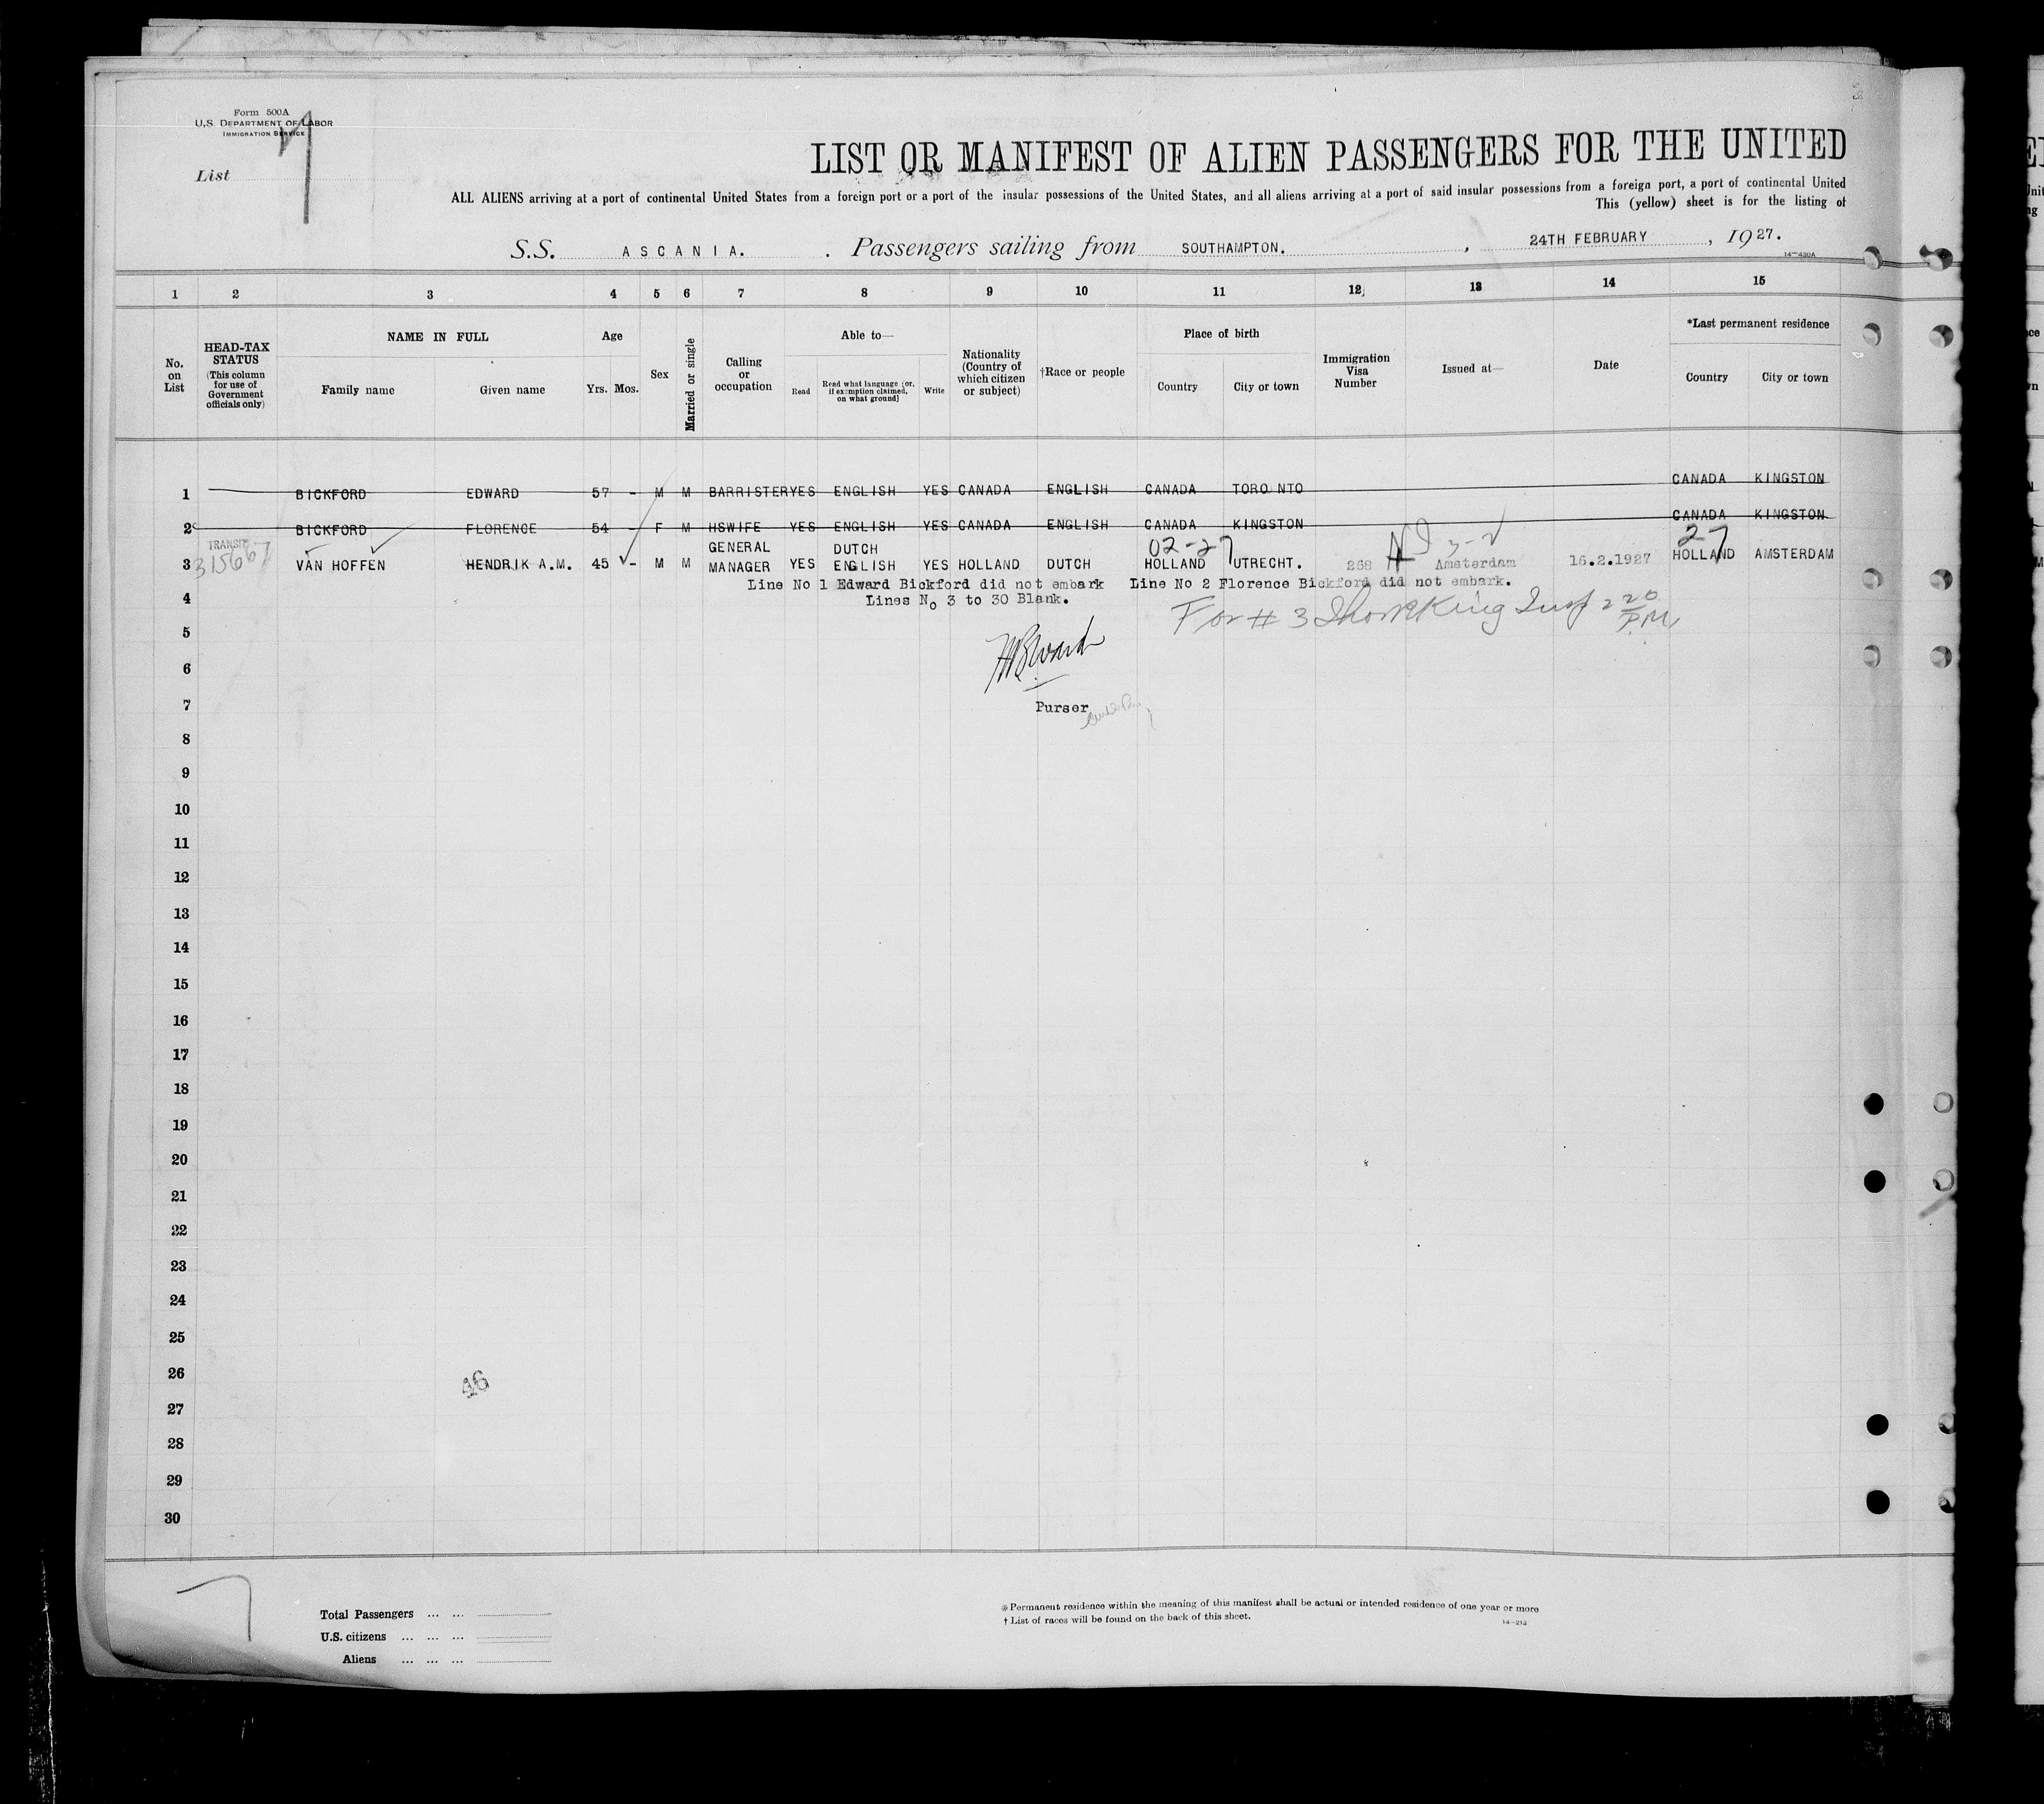 Form 500A
U.S. DEPARTMENT OF LABOR
IMMIGRATION SERVICE
List 7
LIST OR MANIFEST OF ALIEN PASSENGERS FOR THE UNITED
ALL ALIENS arriving at a port of continental United States from a foreign port or a port of the insular possessions of the United States, and all aliens arriving at a port of said insular possessions from a foreign port, a port of continental United
This (yellow) sheet is for the listing of
S.S. ASCANIA. . Passengers sailing from SOUTHAMPTON. , 24TH FEBRUARY , 1927.
14—430A
1 2 3 4 5 6 7 8 9 10 11 12 13 14 15
No. on List
HEAD-TAX STATUS (This column for use of Government officials only)
NAME IN FULL
Family name Given name
Age
Yrs. Mos.
Sex
Married or single
Calling or occupation
Able to—
Read Read what language [or, if exemption claimed, on what ground] Write
Nationality (Country of which citizen or subject)
†Race or people
Place of birth
Country City or town
Immigration Visa Number
Issued at—
Date
*Last permanent residence
Country City or town
1 BICKFORD EDWARD 57 - M M BARRISTER YES ENGLISH YES CANADA ENGLISH CANADA TORONTO CANADA KINGSTON
2 BICKFORD FLORENCE 54 - F M HSWIFE YES ENGLISH YES CANADA ENGLISH CANADA KINGSTON CANADA KINGSTON
TRANSIT
315667
02-27
27
3 VAN HOFFEN HENDRIK A.M. 45 - M M GENERAL MANAGER YES DUTCH ENGLISH YES HOLLAND DUTCH HOLLAND UTRECHT. 268 Amsterdam 16.2.1927 HOLLAND AMSTERDAM
Line No 1 Edward Bickford did not embark Line No 2 Florence Bickford did not embark.
4 Lines No 3 to 30 Blank.
For # 3
5
6
7 Purser
8
9
10
11
12
13
14
15
16
17
18
19
20
21
22
23
24
25
26
46
27
28
29
30
7
Total Passengers ... ...
U.S. citizens ... ... ...
Aliens ... ... ...
*Permanent residence within the meaning of this manifest shall be actual or intended residence of one year or more
†List of races will be found on the back of this sheet.
14—213